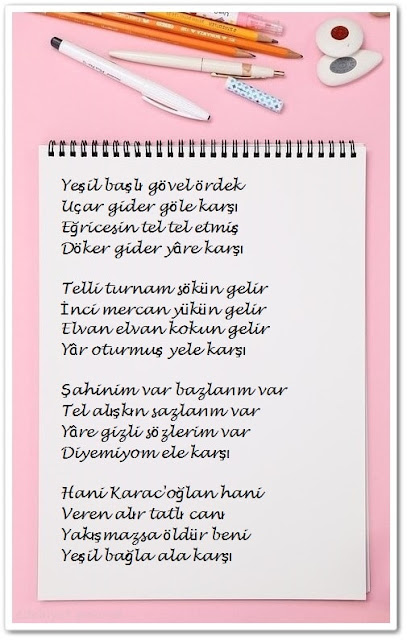 Yeşil başlı gövel ördek
Uçar gider göle karşı
Eğricesin tel tel etmiş
Döker gider yâre karşı
Telli turnam sökün gelir
İnci mercan yükün gelir
Elvan elvan kokun gelir
Yâr oturmuş yele karşı
Şahinim var bazlarım var
Tel alışkın sazlarım var
Yâre gizli sözlerim var
Diyemiyom ele karşı
Hani Karac'oğlan hani
Veren alır tatlı canı
Yakışmazsa öldür beni
Yeşil bağla ala karşı